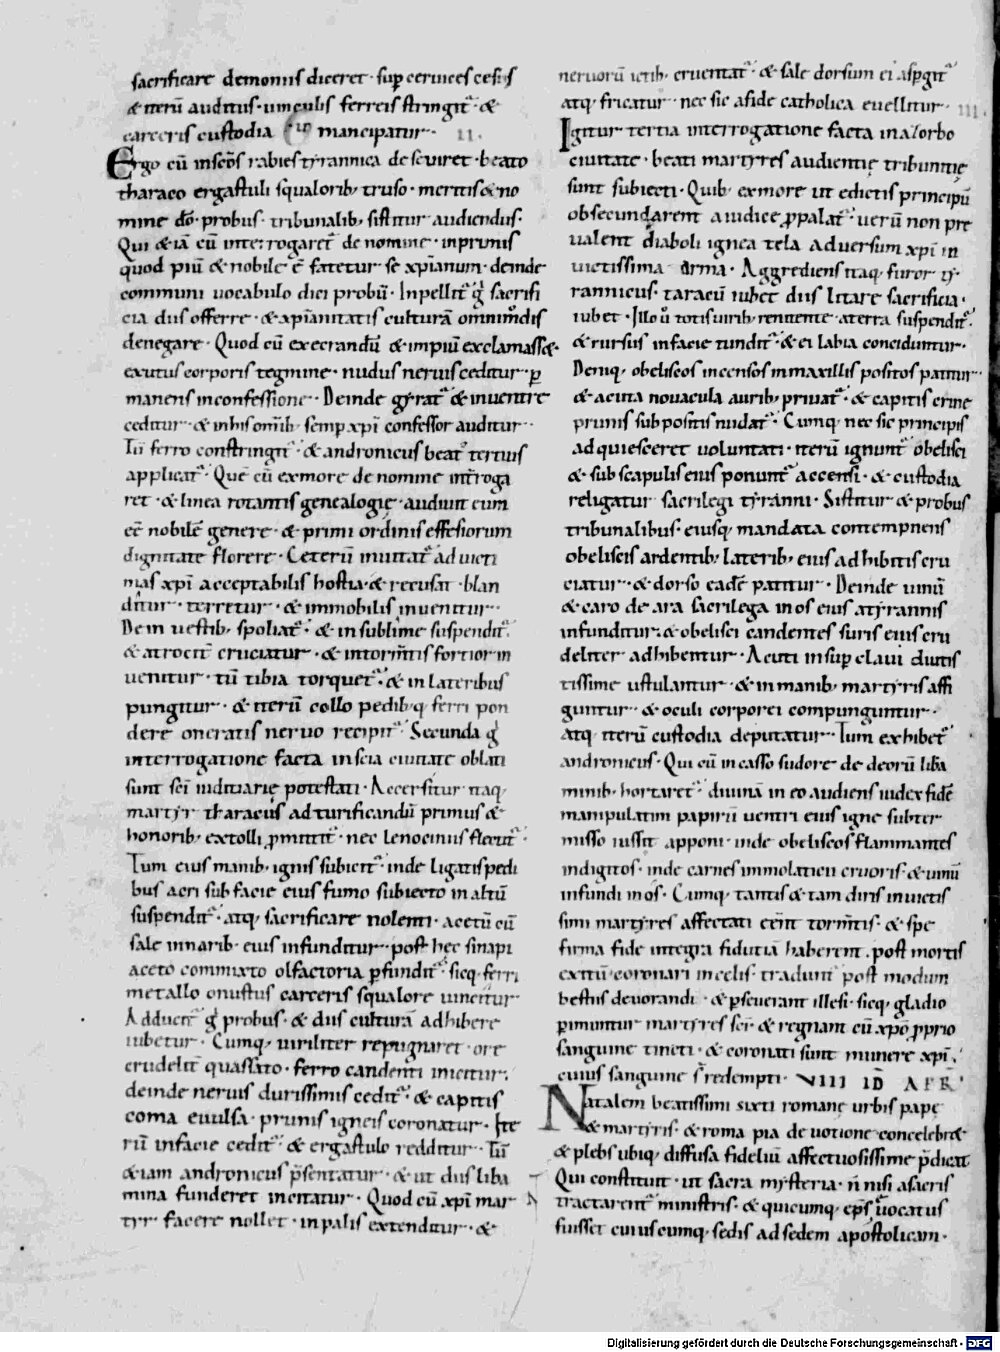 sacrificare demoniis diceret · sup cervices cesus
& iteru auditus · vinculis ferreis stringit · &
carceris custodia mancipatur · II.
Ergo cu in scos rabies tyrannica deseviret · beato
tharaco ergastuli squalorib; truso · meritis & no
mine do · probus · tribunalib; sistitur audiendus ·
Qui &ia cu interrogaret de nomine · inprimis
quod piu & nobile e fatetur se xpianum · deinde
communi vocabulo dici probu · Inpellit g sacrifi
cia diis offerre · & xpianitatis cultura omnimodis
denegare · Quod cu execrandu & impiu exclamass&·
exutus corporis tegmine · nudus nervis ceditur · p
manens in confessione · Deinde gyrat & in ventre
ceditur · & in his omib; semp xpi confessor auditur ·
Tu ferro constringit · & andronicus beat tertius
applicat · Que cu ex more de nomine introga
ret · & linea rotantis genealogie · audivit eum
ee nobile genere · & primi ordinis effesiorum
dignitate florere · Ceteru invitat ad victi
mas xpi acceptabilis hostia · & recusat · blan
ditur · terretur · & immobilis invenitur ·
Dein vestib; spoliat · & in sublime suspendit ·
& atrocit cruciatur · & in tormtis fortior in
venitur · tu tibia torquet · & in lateribus
pungitur · & iteru collo pedib; q ferri pon
dere oneratis nervo recipit · Secunda g
interrogatione facta in scia civitate oblati
sunt sci iudiciarie potestati · Accersitur itaq;
martyr tharacus ad turificandu primus &
honorib; extolli pmittit · nec lenociniis flectit ·
Tum eius manib; ignis subicit · inde ligatis pedi
bus acri sub facie eius fumo subiecto in altu
suspendit · atq; sacrificare nolenti · acetu cu
sale in narib; eius infunditur · post hec sinapi
aceto commixto olfactoria pfundit · sicq; ferri
metallo onustus carceris squalore vincitur
Adducit g probus · & diis cultura adhibere
iubetur · Cumq; viriliter repugnaret · ore
crudelit quassato · ferro candenti inicitur ·
deinde nervis durissimis cedit · & capitis
coma evulsa · prunis igneis coronatur · Ite
ru in facie cedit · & ergastulo redditur · Tu
&iam andronicus psentatur · & ut diis liba
mina funderet incitatur · Quod cu xpi mar
tyr facere nollet · in palis extenditur · &
nervoru ictib; cruentat · & sale dorsum ei aspgit
atq; fricatur · nec sic a fide catholica evellitur · III.
Igitur tertia interrogatione facta in azorbo
civitate · beati martyres audientie tribunitie
sunt subiecti · Quib; ex more ut edictis principu
obsecundarent a iudice ppalat · veru non pre
valent diaboli ignea tela adversum xpi in
victissima arma · Aggrediens itaq; furor ty
rannicus · taracu iubet diis litare sacrificia ·
iubet · Illo u totis virib; renitente · a terra suspendit ·
& rursus in facie tundit · & ei labia conciduntur ·
Deniq; obeliscos incensos in maxillis positos patitur ·
& acuta novacula aurib; privat · & capitis crine
prunis subpositis nudat · Cumq; nec sic principis
adquiesceret voluntati · iteru ignunt obelisci
& sub scapulis eius ponunt accensi · & custodia
religatur sacrilegi tyranni · Sistitur & probus
tribunalibus · eiusq; mandata contempnens
obeliscis ardentib; laterib; eius adhibitis cru
ciatur · & dorso eade patitur · Deinde vinu
& caro de ara sacrilega in os eius a tyrannis
infunditur · & obelisci candentes suris eius cru
deliter adhibentur · Acuti insup clavi diutis
tissime ustulantur · & in manib; martyris affi
guntur · & oculi corporei compunguntur ·
atq; iteru custodia deputatur · Tum exhibet
andronicus · Qui cu in casso sudore de deoru liba
minib; hortaret · divina in eo audiens iudex fide
manipulatim papiru ventri eius igne subter
misso iussit apponi · inde obeliscos flammantes
in digitos · inde carnes immolaticii cruoris · & vinu
infundi in os · Cumq; tantis & tam diris invictis
simi martyres affectati cent tormtis · & spe
firma fide integra fidutia haberent · post mortis
exitu coronari in celis · tradunt post modum
bestiis devorandi · & pseverant illesi · sicq; gladio
pimuntur martyres sci · & regnant cu xpo pprio
sanguine tincti · & coronati sunt munere xpi ·
cuius sanguine s redempti · VIII ID APR ·
Natalem beatissimi sixti romane urbis pape
& martyris · & roma pia devotione concelebr&·
& plebs ubiq; diffusa fideliu affectuosissime pdicat
Qui constituit · ut sacra mysteria · n nisi a sacris
tractarent ministris · & quicumq; eps vocatus
fuisset cuiuscumq; sedis ad sedem apostolicam ·
Digitalisierung gefördert durch die Deutsche Forschungsgemeinschaft - DFG